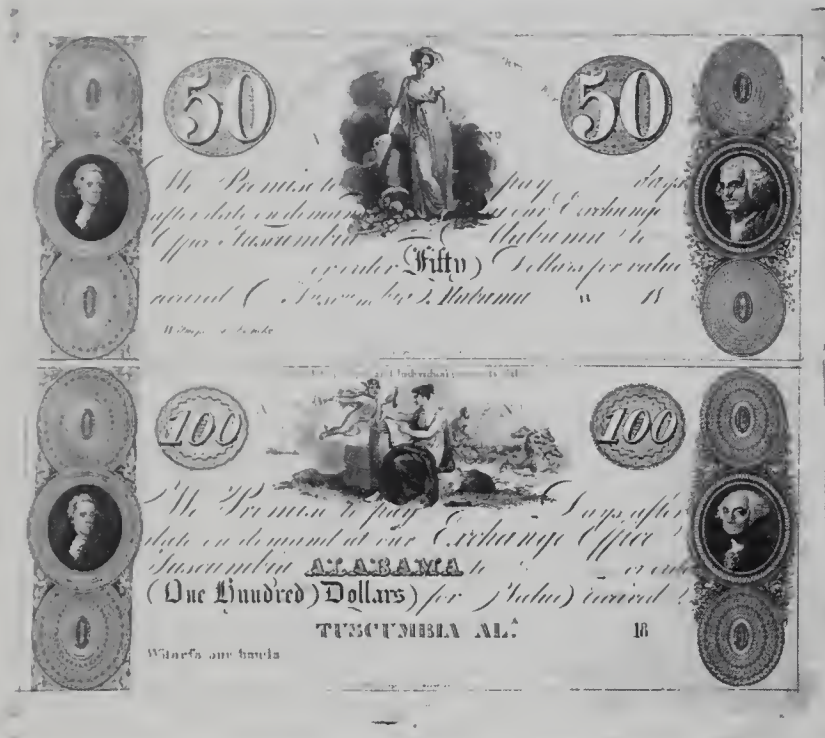 50 50
We Promise to pay days
after date on demand at our Exchange
Office Tuscumbia Alabama to
or order (Fifty) Dollars for value
Tuscumbia, Alabama 18
Individually
100 100
We Promise to pay Days after
date on demand at our Exchange Office
Tuscumbia ALABAMA to or order
(One Hundred) Dollars) for Value)
TUSCUMBIA AL.A 18
Witness our hands